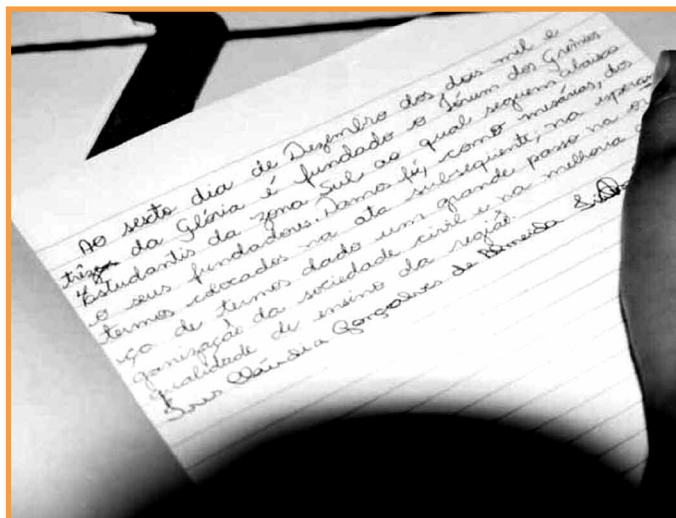 Ao sexto dia de Dezembro dos dois mil e
três da Glória é fundado o Fórum dos Grêmios
Estudantis da zona Sul ao qual seguem abaixo
o seus fundadores. Damos fé, como mesários, dos
termos colocados na ata subseqüente, na esperan
ça de termos dado um grande passo na or
ganização da sociedade civil e na melhoria
qualidade de ensino da região.
Cláudia Gonçalves de Almeida